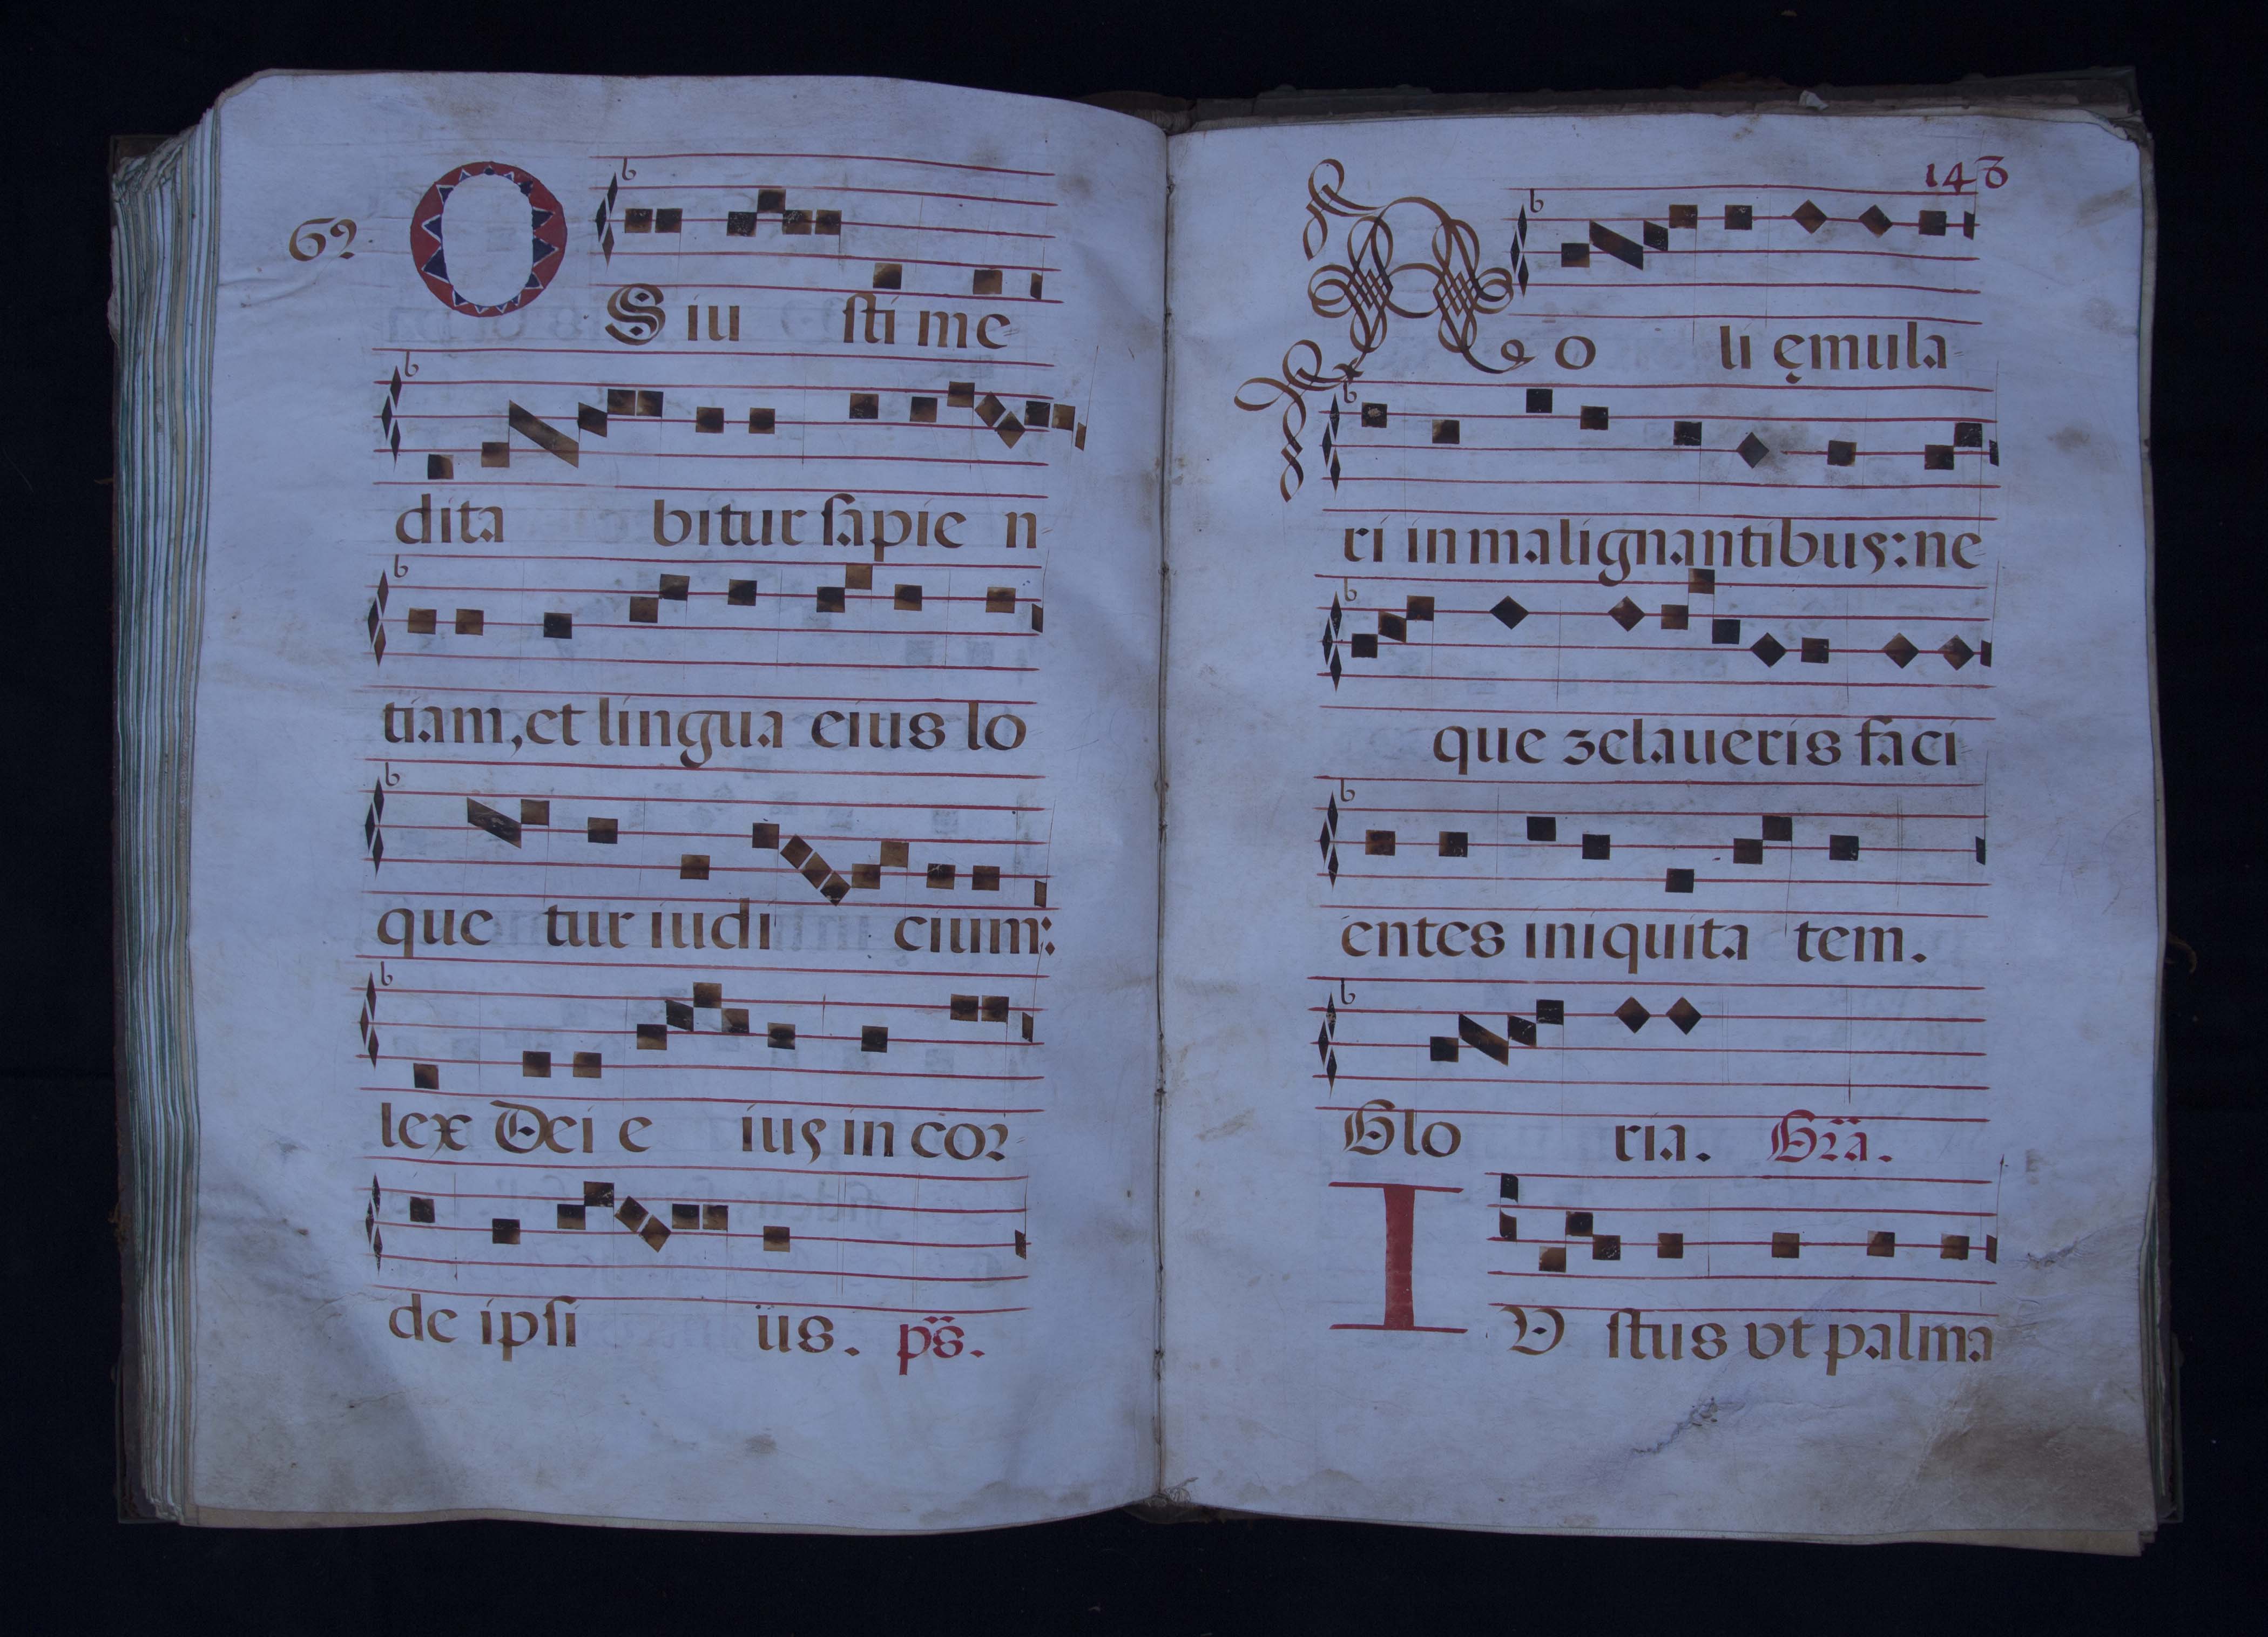 62
OS iu sti me
dita bitur sapie n-
tiam, et lingua eius lo
que tur iudi cium:
lex Dei e ius in cor-
de ipsi ius. ps.
143
No li ęmula-
ri in malignantibus: ne
que zelaueris faci
entes iniquita tem.
Glo ria. Gr̃a.
IV stus vt palma